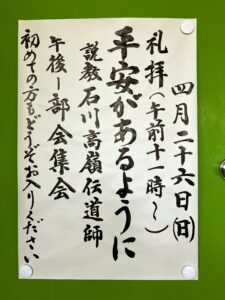 四月二十六日(日)
礼拝(午前十一時〜)
平安があるように
説教 石川高嶺伝道師
午後ー部会集会
初めての方もどうぞお入りください